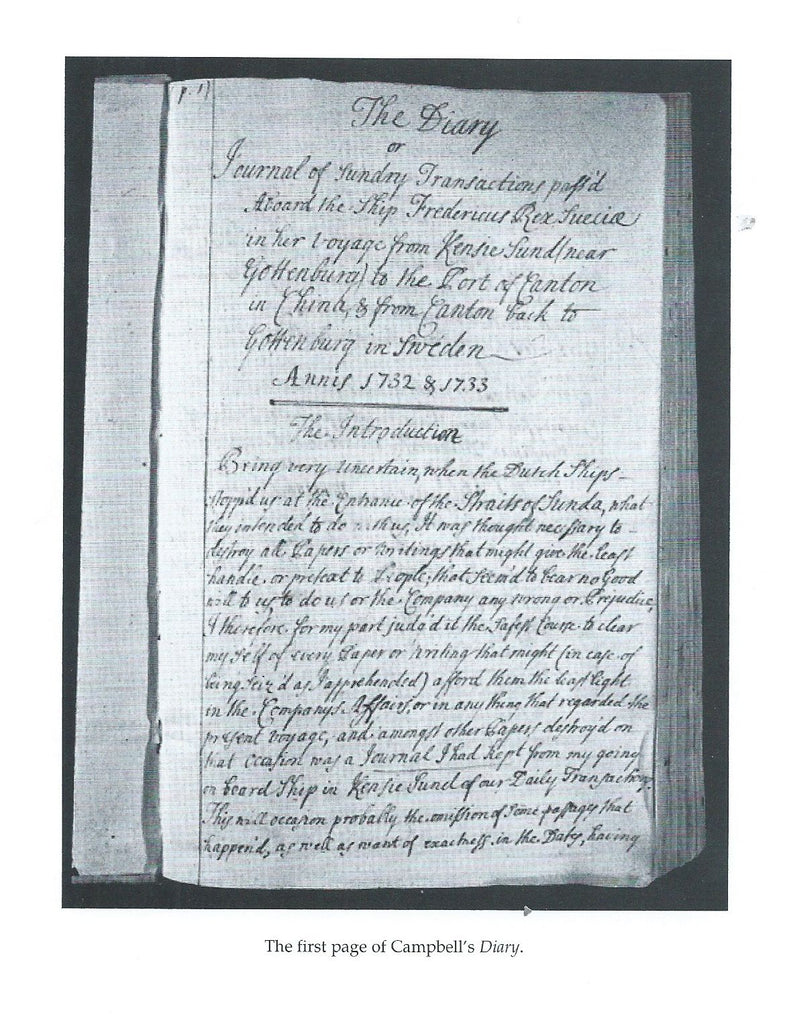 p. 1)
The Diary
or
Journal of Sundry Transactions pass'd
Aboard the Ship Fredericus Rex Sueciæ
in her Voyage from Kensie Sund (near
Gottenburg) to the Port of Canton
in China, & from Canton back to
Gottenburg in Sweden
Annis 1732 & 1733
The Introduction
Being very uncertain, when the Dutch Ships
stopp'd us at the Entrance of the Straits of Sunda, what
they intended to do with us, It was thought necessary to
destroy all Papers or Writings that might give the least
handle or pretext to People, that seem'd to bear no Good
will to us, to do us or the Company any wrong or Prejudice,
I therefore for my part judg'd it the Safest Course to clear
my Self of every Paper or Writing that might (in case of
being Seiz'd as I apprehended) afford them the least light
in the Company's Affairs, or in any thing that regarded the
present Voyage, and amongst other Papers destroy'd on
that occasion was a Journal I had kept from my going
on board Ship in Kensie Sund of our Daily Transactions.
This will occasion probably the omission of Some passages that
happen'd, as well as want of exactness in the Dates, having
The first page of Campbell's Diary.